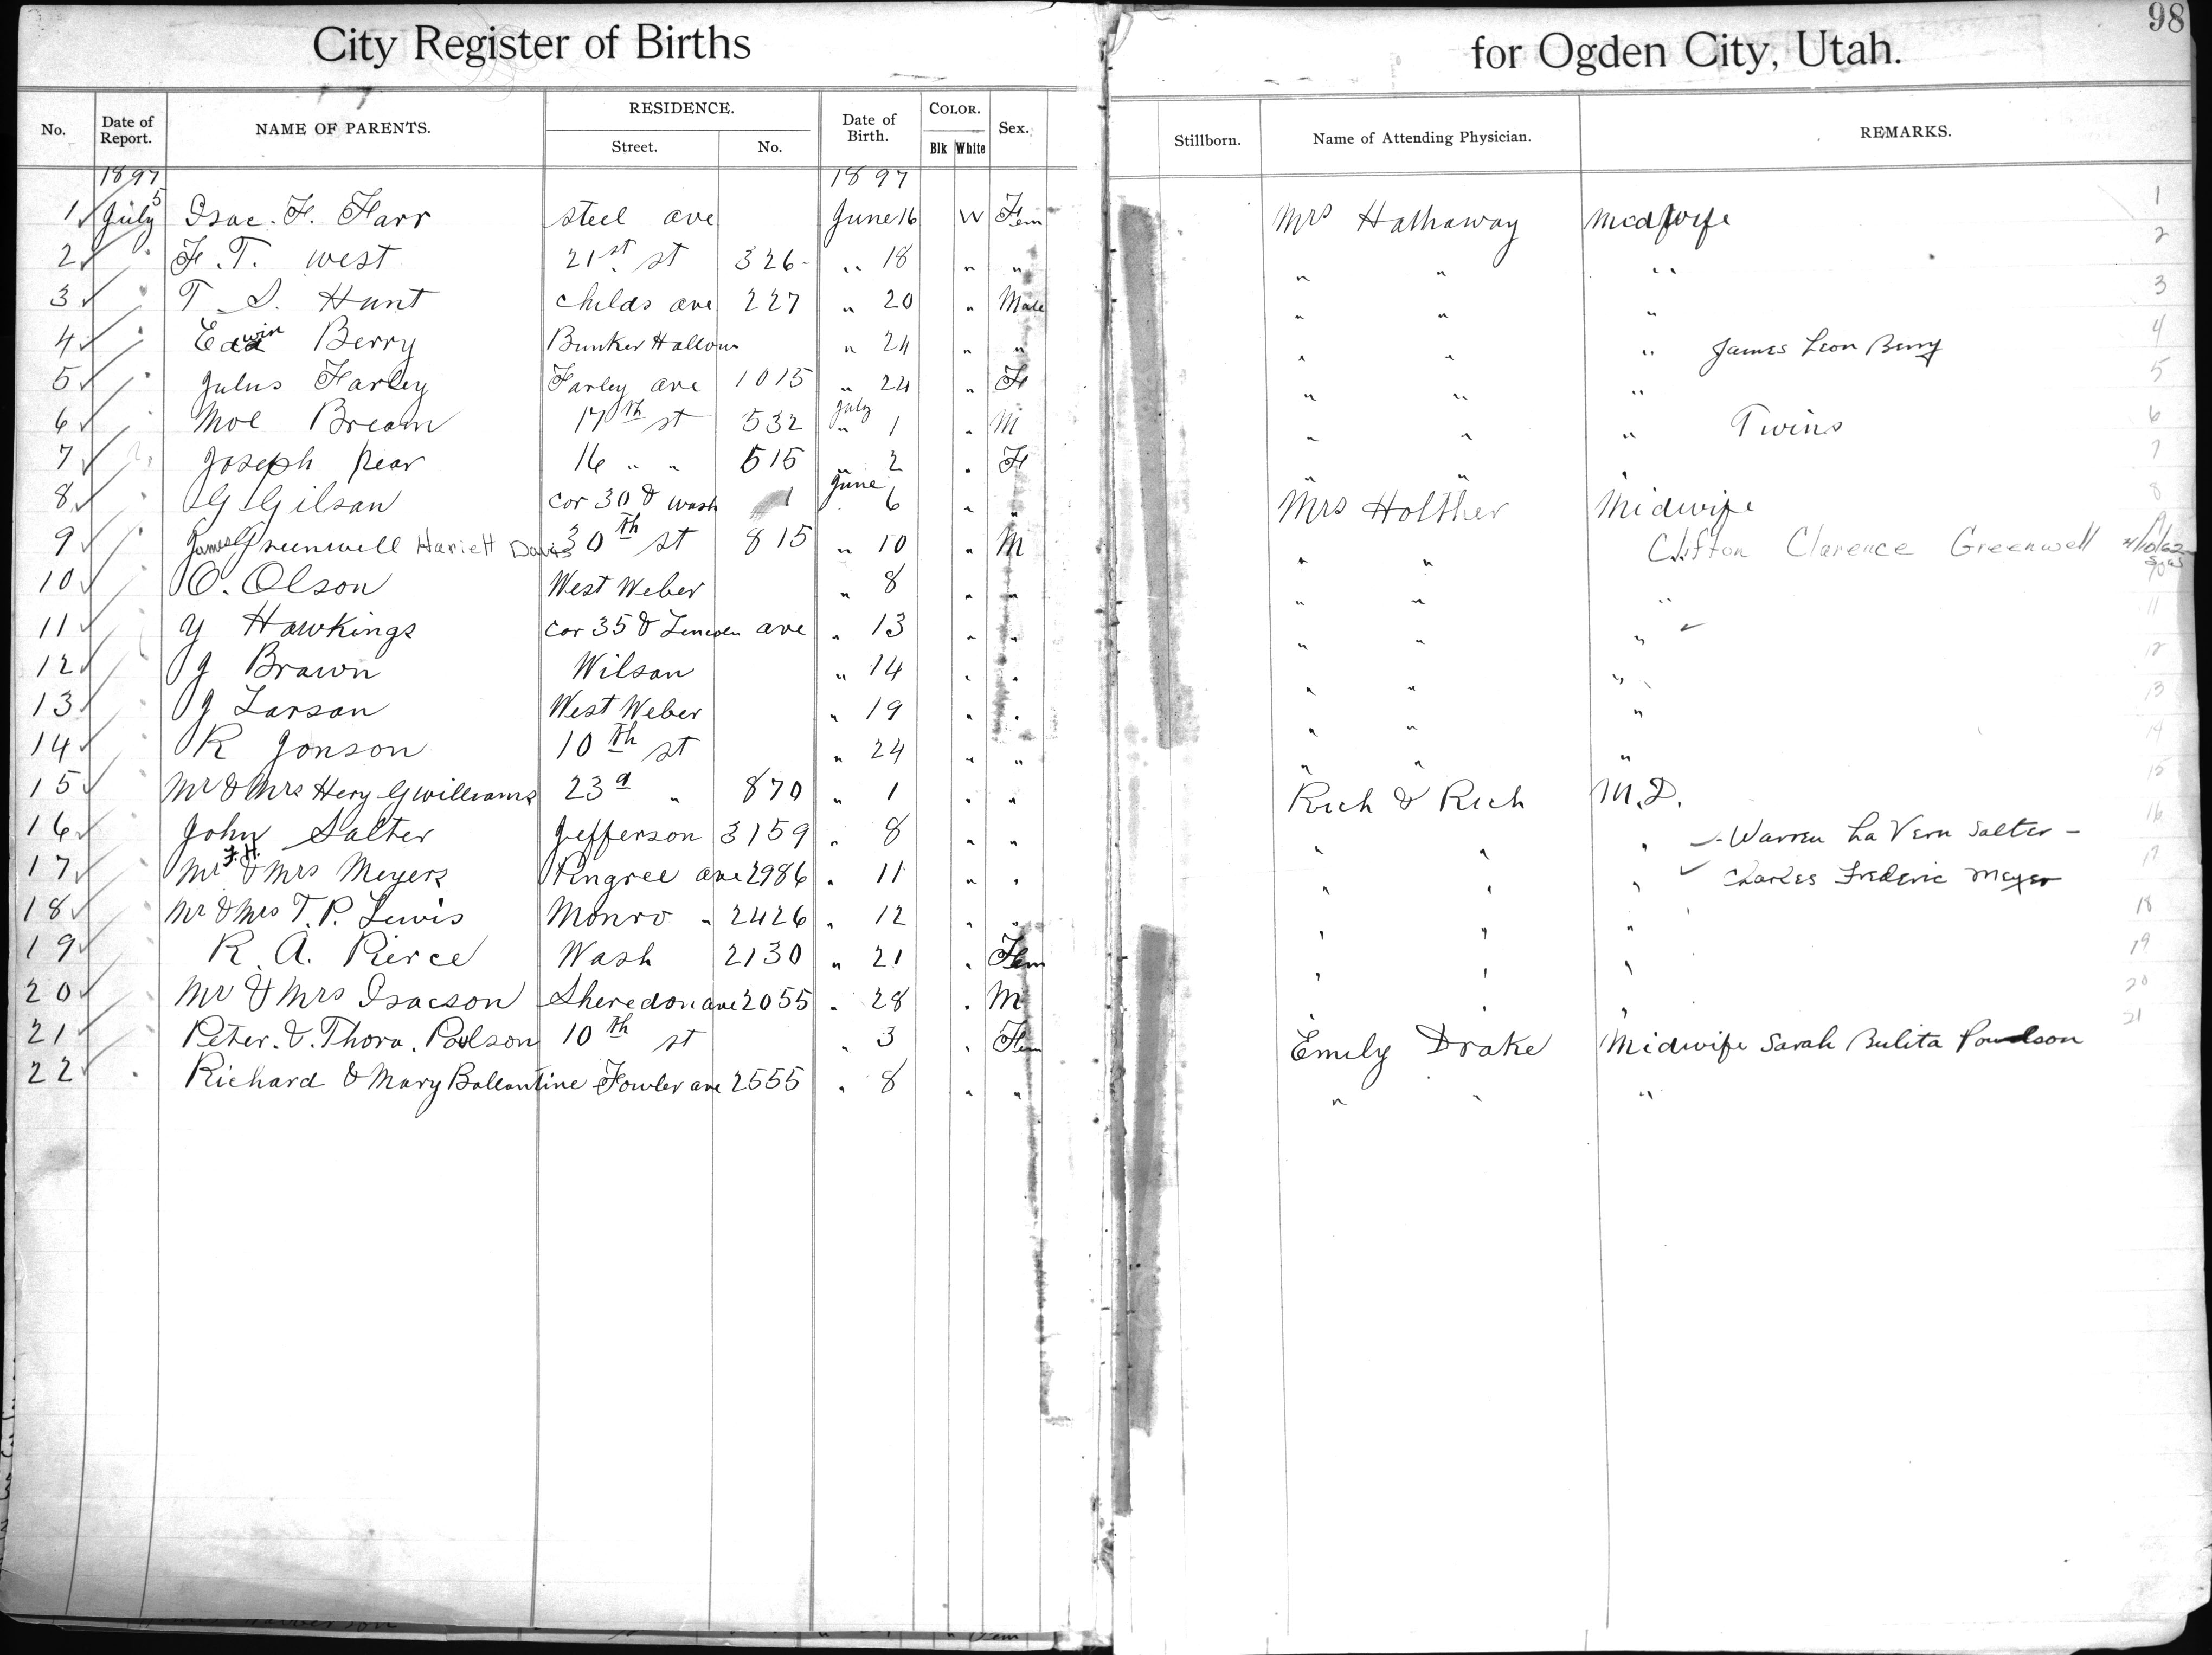 City Register of Births for Ogden City, Utah. 98
No. Date of Report. NAME OF PARENTS. RESIDENCE. Street. No. Date of Birth. COLOR. Blk White Sex. Stillborn. Name of Attending Physician. REMARKS.
1897 1897
1 July 5 Isac. F. Farr steel ave June 16 W Fem Mrs Hathaway Midwife 1
2 " F. T. west 21st st 326- " 18 " " " " " 2
3 " T S. Hunt childs ave 227 " 20 " Male " " " 3
4 " Edwin Berry Bunker Hallow " 24 " " " " " James Leon Berry 4
5 " Julus Farley Farley ave 1015 " 24 " F " " " 5
6 " Moe Bream 17th st 532 July " 1 " M " " " Twins 6
7 " Joseph Pear 16 " " 515 " 2 " F " " " 7
8 " G Gilson cor 30 & wash June 6 " " Mrs Holther Midwife 8
9 " James Greenwell Hariett Davis 30th st 815 " 10 " M " " Clifton Clarence Greenwell 9
10 " O. Olson West Weber " 8 " " " " " 10
11 " Y Hawkings cor 35 & Lincoln ave " 13 " " " " " 11
12 " J Brawn Wilson " 14 " " " " " 12
13 " J Larson West Weber " 19 " " " " " 13
14 " R Jonson 10th st " 24 " " " " " 14
15 " Mr & Mrs Hery Gwilliams 23d " 870 " 1 " " Rich & Rich M.D. 15
16 " John Salter Jefferson 3159 " 8 " " " " " Warren La Vern Salter - 16
17 " Mr F.H. & Mrs Meyers Pingree ave 2986 " 11 " " " " " Charles Frederic Meyer 17
18 " Mr & Mrs T. P. Lewis Monro " 2426 " 12 " " " " " 18
19 " R. A. Pierce Wash 2130 " 21 " Fem " " " 19
20 " Mr & Mrs Isacson Sheredon ave 2055 " 28 " M " " " 20
21 " Peter. & Thora. Poulson 10th st " 3 " Fem Emily Drake Midwife Sarah Bulita Poulson 21
22 " Richard & Mary Ballantine Fowler ave 2555 " 8 " " " " "